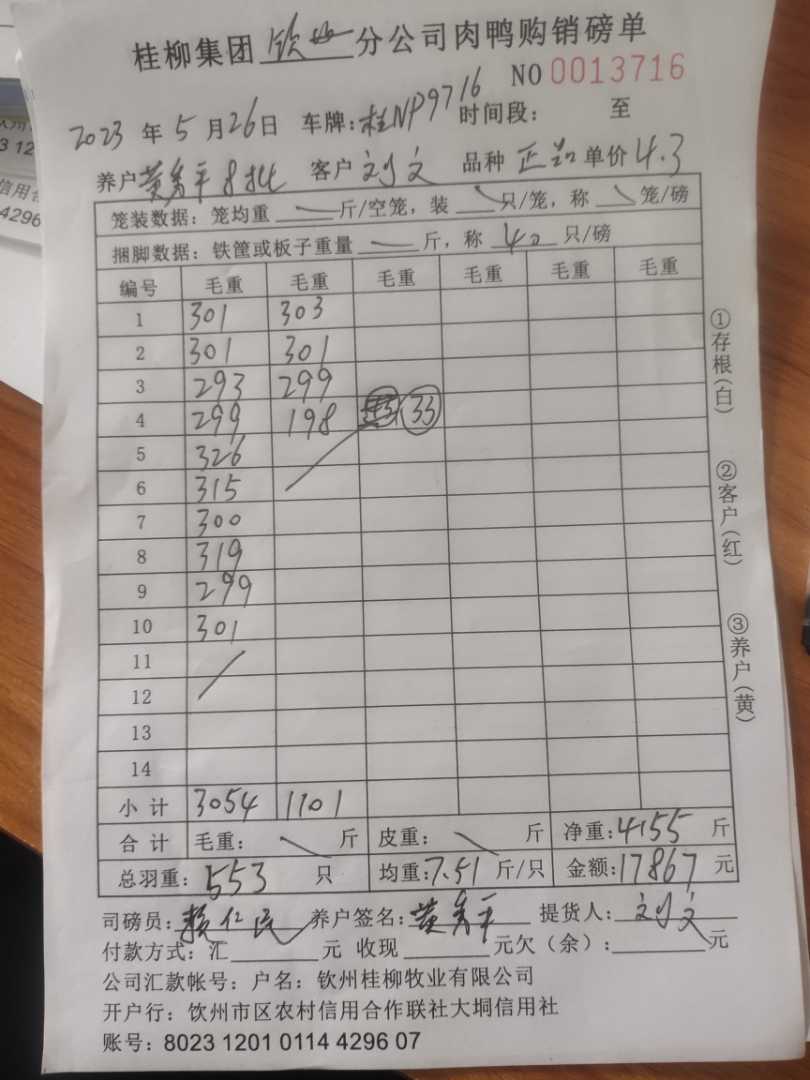 桂柳集团钦州分公司肉鸭购销磅单
NO 0013716
2023 年 5 月 26 日 车牌:桂NP9716 时间段: 至
养户 黄秀平8批 客户 刘文 品种 正品 单价 4.3
笼装数据:笼均重 斤/空笼,装 只/笼,称 笼/磅
捆脚数据:铁筐或板子重量 斤,称 40 只/磅
编号 毛重 毛重 毛重 毛重 毛重 毛重
1 301 303
2 301 301
3 293 299
4 299 198 33
5 326
6 315
7 300
8 319
9 299
10 301
11
12
13
14
小计 3054 1101
合计 毛重: 斤 皮重: 斤 净重:4155 斤
总羽重:553 只 均重:7.51 斤/只 金额:17867 元
司磅员:赖仁民 养户签名:黄秀平 提货人:刘文
付款方式:汇 元 收现 元欠(余): 元
公司汇款帐号:户名:钦州桂柳牧业有限公司
开户行:饮州市区农村信用合作联社大垌信用社
账号:8023 1201 0114 4296 07
①存根(白)
②客户(红)
③养户(黄)
3 12
信用合
4296